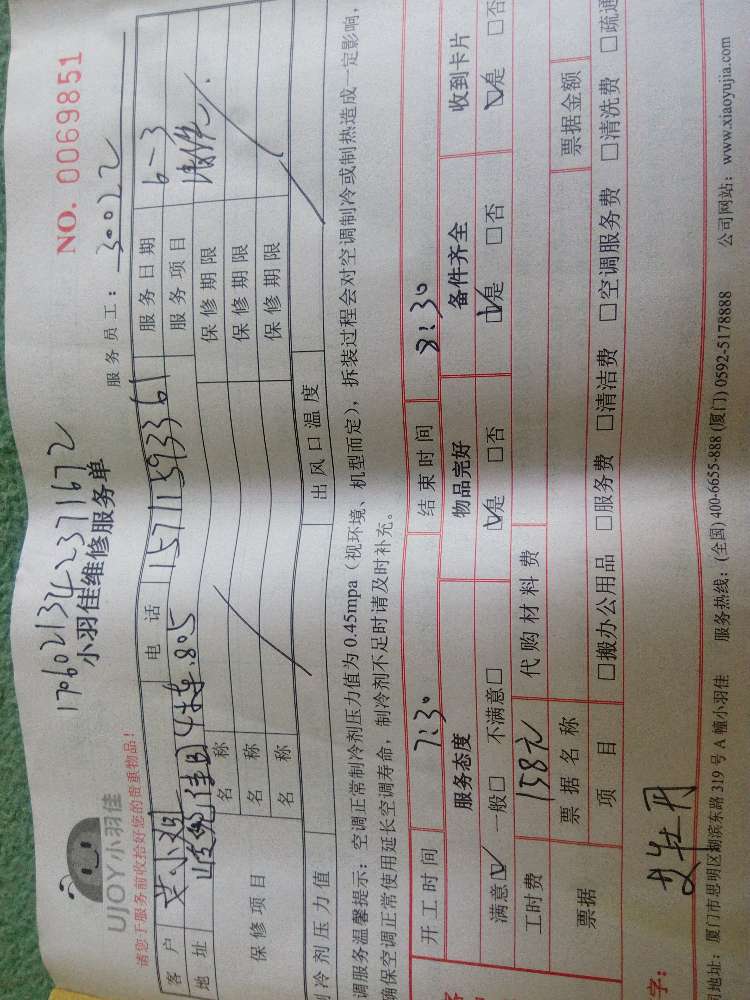 NO. 0069851
17060213423711672
小羽佳维修服务单
UJOY小羽佳
服务员工：30022
请您于服务前收拾好您的贵重物品！
客户 电话 15711593361 服务日期 6-3
地址 4栋.805 服务项目 清洗
保修项目 名称 保修期限
名称 保修期限
名称 保修期限
冷剂压力值 出风口温度
调服务温馨提示：空调正常制冷剂压力值为 0.45mpa（视环境、机型而定），拆装过程会对空调制冷或制热造成一定影响，
确保空调正常使用延长空调寿命，制冷剂不足时请及时补充。
开工时间 7:30 结束时间 8:30
服务态度 物品完好 备件齐全 收到卡片
满意☑ 一般□ 不满意□ ☑是 □否 ☑是 □否 ☑是 □否
工时费 158元 代购材料费
票据 票据名称 票据金额
项目 □搬办公用品 □服务费 □清洁费 □空调服务费 □清洗费 □疏通
字：
地址：厦门市思明区湖滨东路 319 号 A 幢小羽佳 服务热线：(全国) 400-6655-888 (厦门) 0592-5178888 公司网站：www.xiaoyujia.com